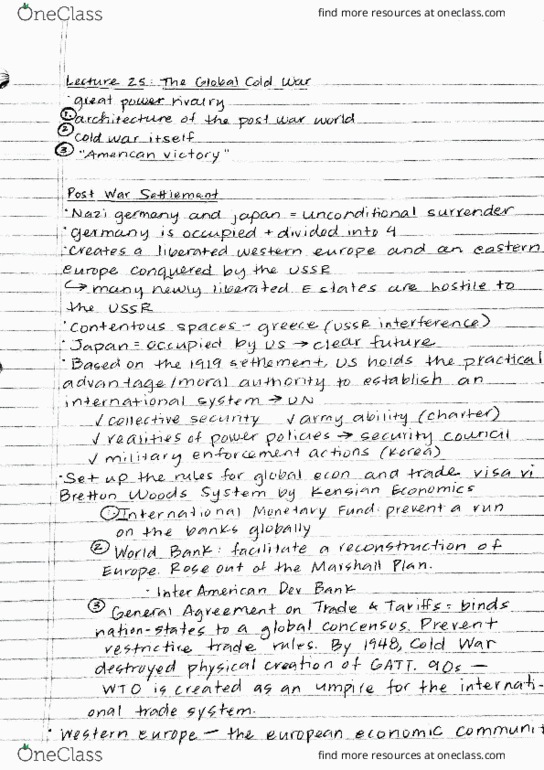 OneClass
find more resources at oneclass.com
Lecture 25: The Global Cold War
· great power rivalry
① architecture of the post war world
② cold war itself
③ "American victory"
Post War Settlement
· Nazi germany and japan = unconditional surrender
· germany is occupied + divided into 4
· creates a liberated western europe and an eastern
europe conquered by the USSR
↳ many newly liberated E states are hostile to
the USSR
· contentous spaces - greece (USSR interference)
· Japan = occupied by US → clear future
· Based on the 1919 settlement, US holds the practical
advantage/moral authority to establish an
international system → UN
✓ collective security ✓ army ability (charter)
✓ realities of power policies → security council
✓ military enforcement actions (Korea)
· Set up the rules for global econ and trade visa vi
Bretton Woods System by Kensian Economics
① International Monetary Fund: prevent a run
on the banks globally
② World Bank: facilitate a reconstruction of
Europe. Rose out of the Marshall Plan.
· Inter American Dev Bank
③ General Agreement on Trade & Tariffs: binds
nation-states to a global concensus. Prevent
restrictive trade rules. By 1948, Cold War
destroyed physical creation of GATT. 90s —
WTO is created as an umpire for the internati-
onal trade system.
· Western europe — the european economic communit
OneClass
find more resources at oneclass.com